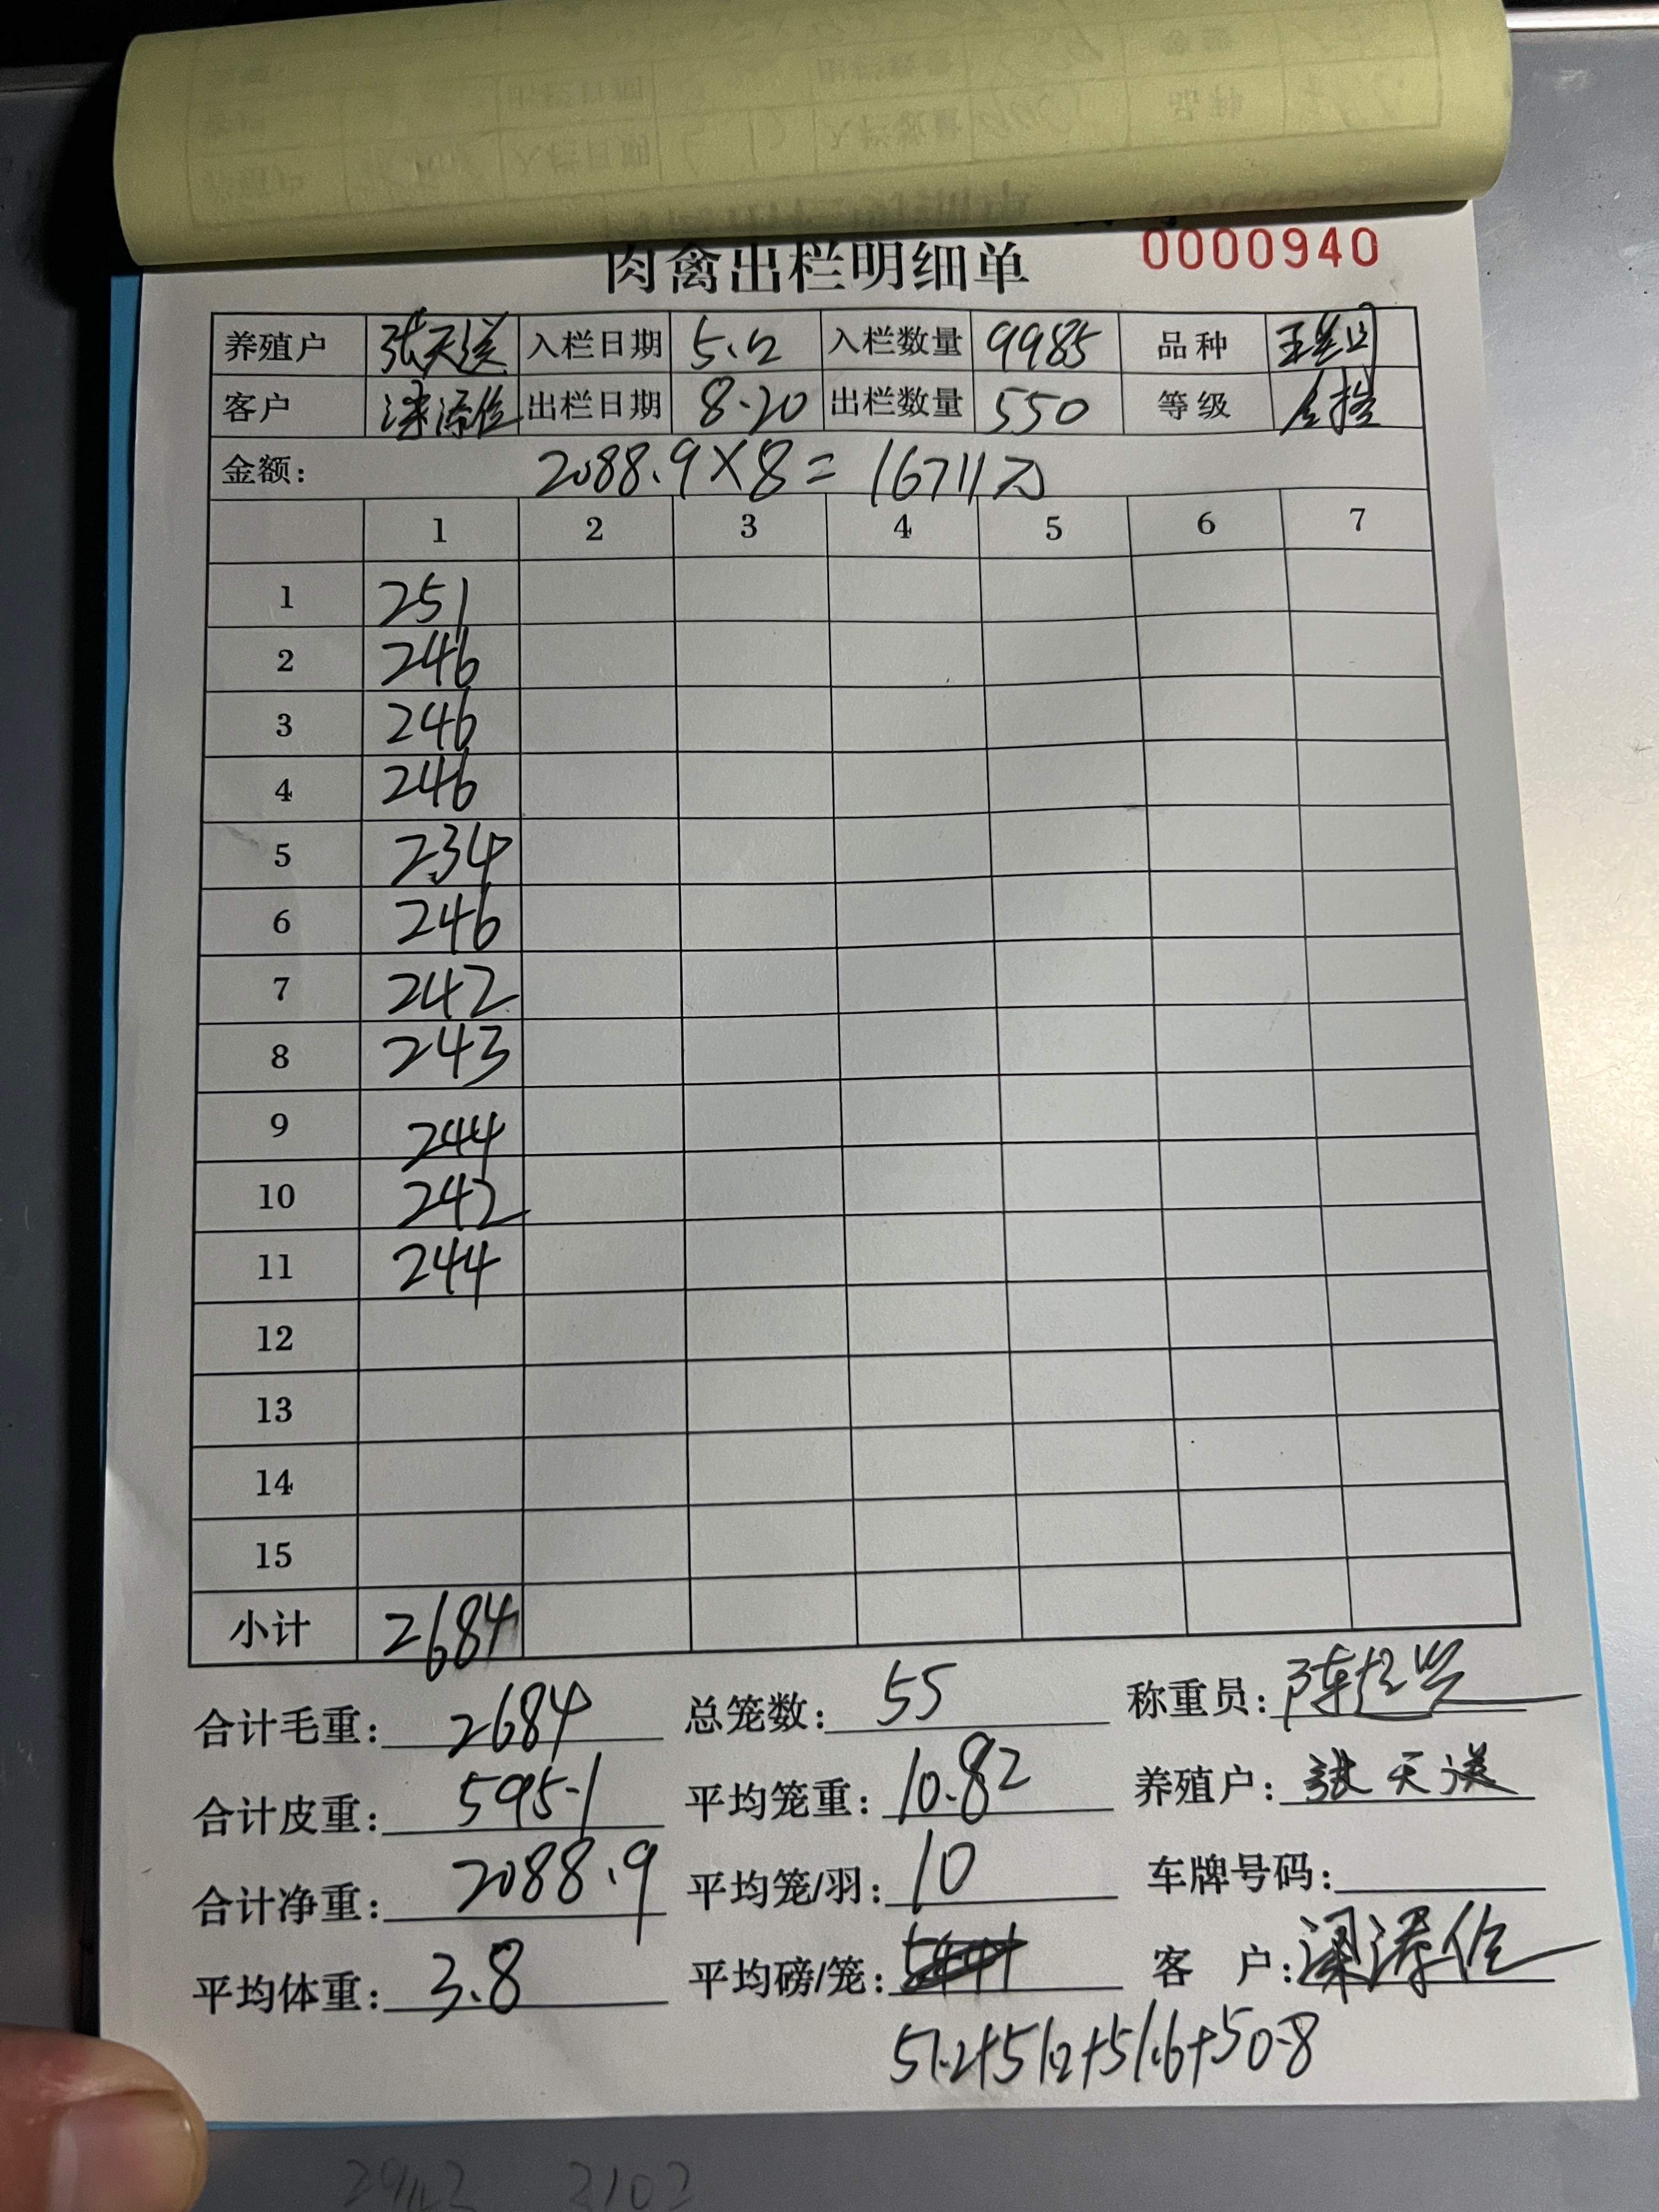 肉禽出栏明细单 0000940
养殖户 张天送 入栏日期 5.12 入栏数量 9985 品种
客户 出栏日期 8.20 出栏数量 550 等级
金额: 2088.9×8=16711元
1 2 3 4 5 6 7
1 251
2 246
3 246
4 246
5 234
6 246
7 242
8 243
9 244
10 242
11 244
12
13
14
15
小计 2684
合计毛重: 2684 总笼数: 55 称重员:
合计皮重: 595.1 平均笼重: 10.82 养殖户: 张天送
合计净重: 2088.9 平均笼/羽: 10 车牌号码:
平均体重: 3.8 平均磅/笼: 客户:
51.2+51.2+51.6+50.8